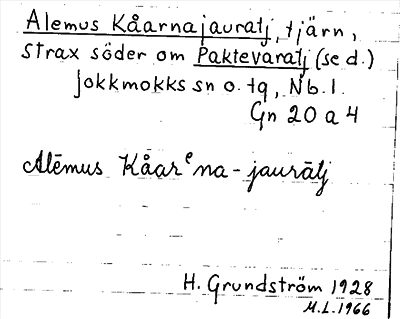 Alemus Kåarnajauratj, tjärn,
strax söder om Paktevaratj (se d.)
Jokkmokks sn o. tg, Nb. l.
Gn 20 a 4
Alēmus Kåarᵉna-jaurātj
H. Grundström 1928
M.L. 1966